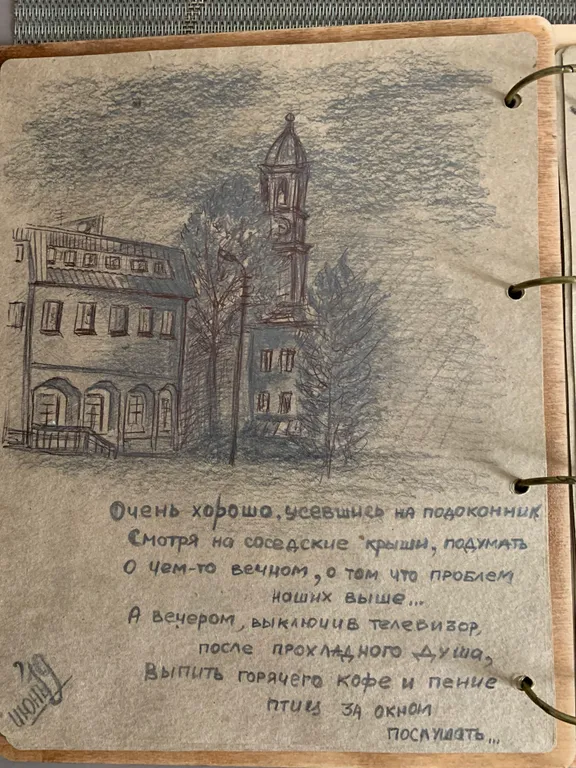 Очень хорошо, усевшись на подоконник
Смотря на соседские крыши, подумать
О чем-то вечном, о том что проблем
наших выше...
А вечером, выключив телевизор,
после прохладного душа,
Выпить горячего кофе и пение
птиц за окном
послушать...
'19